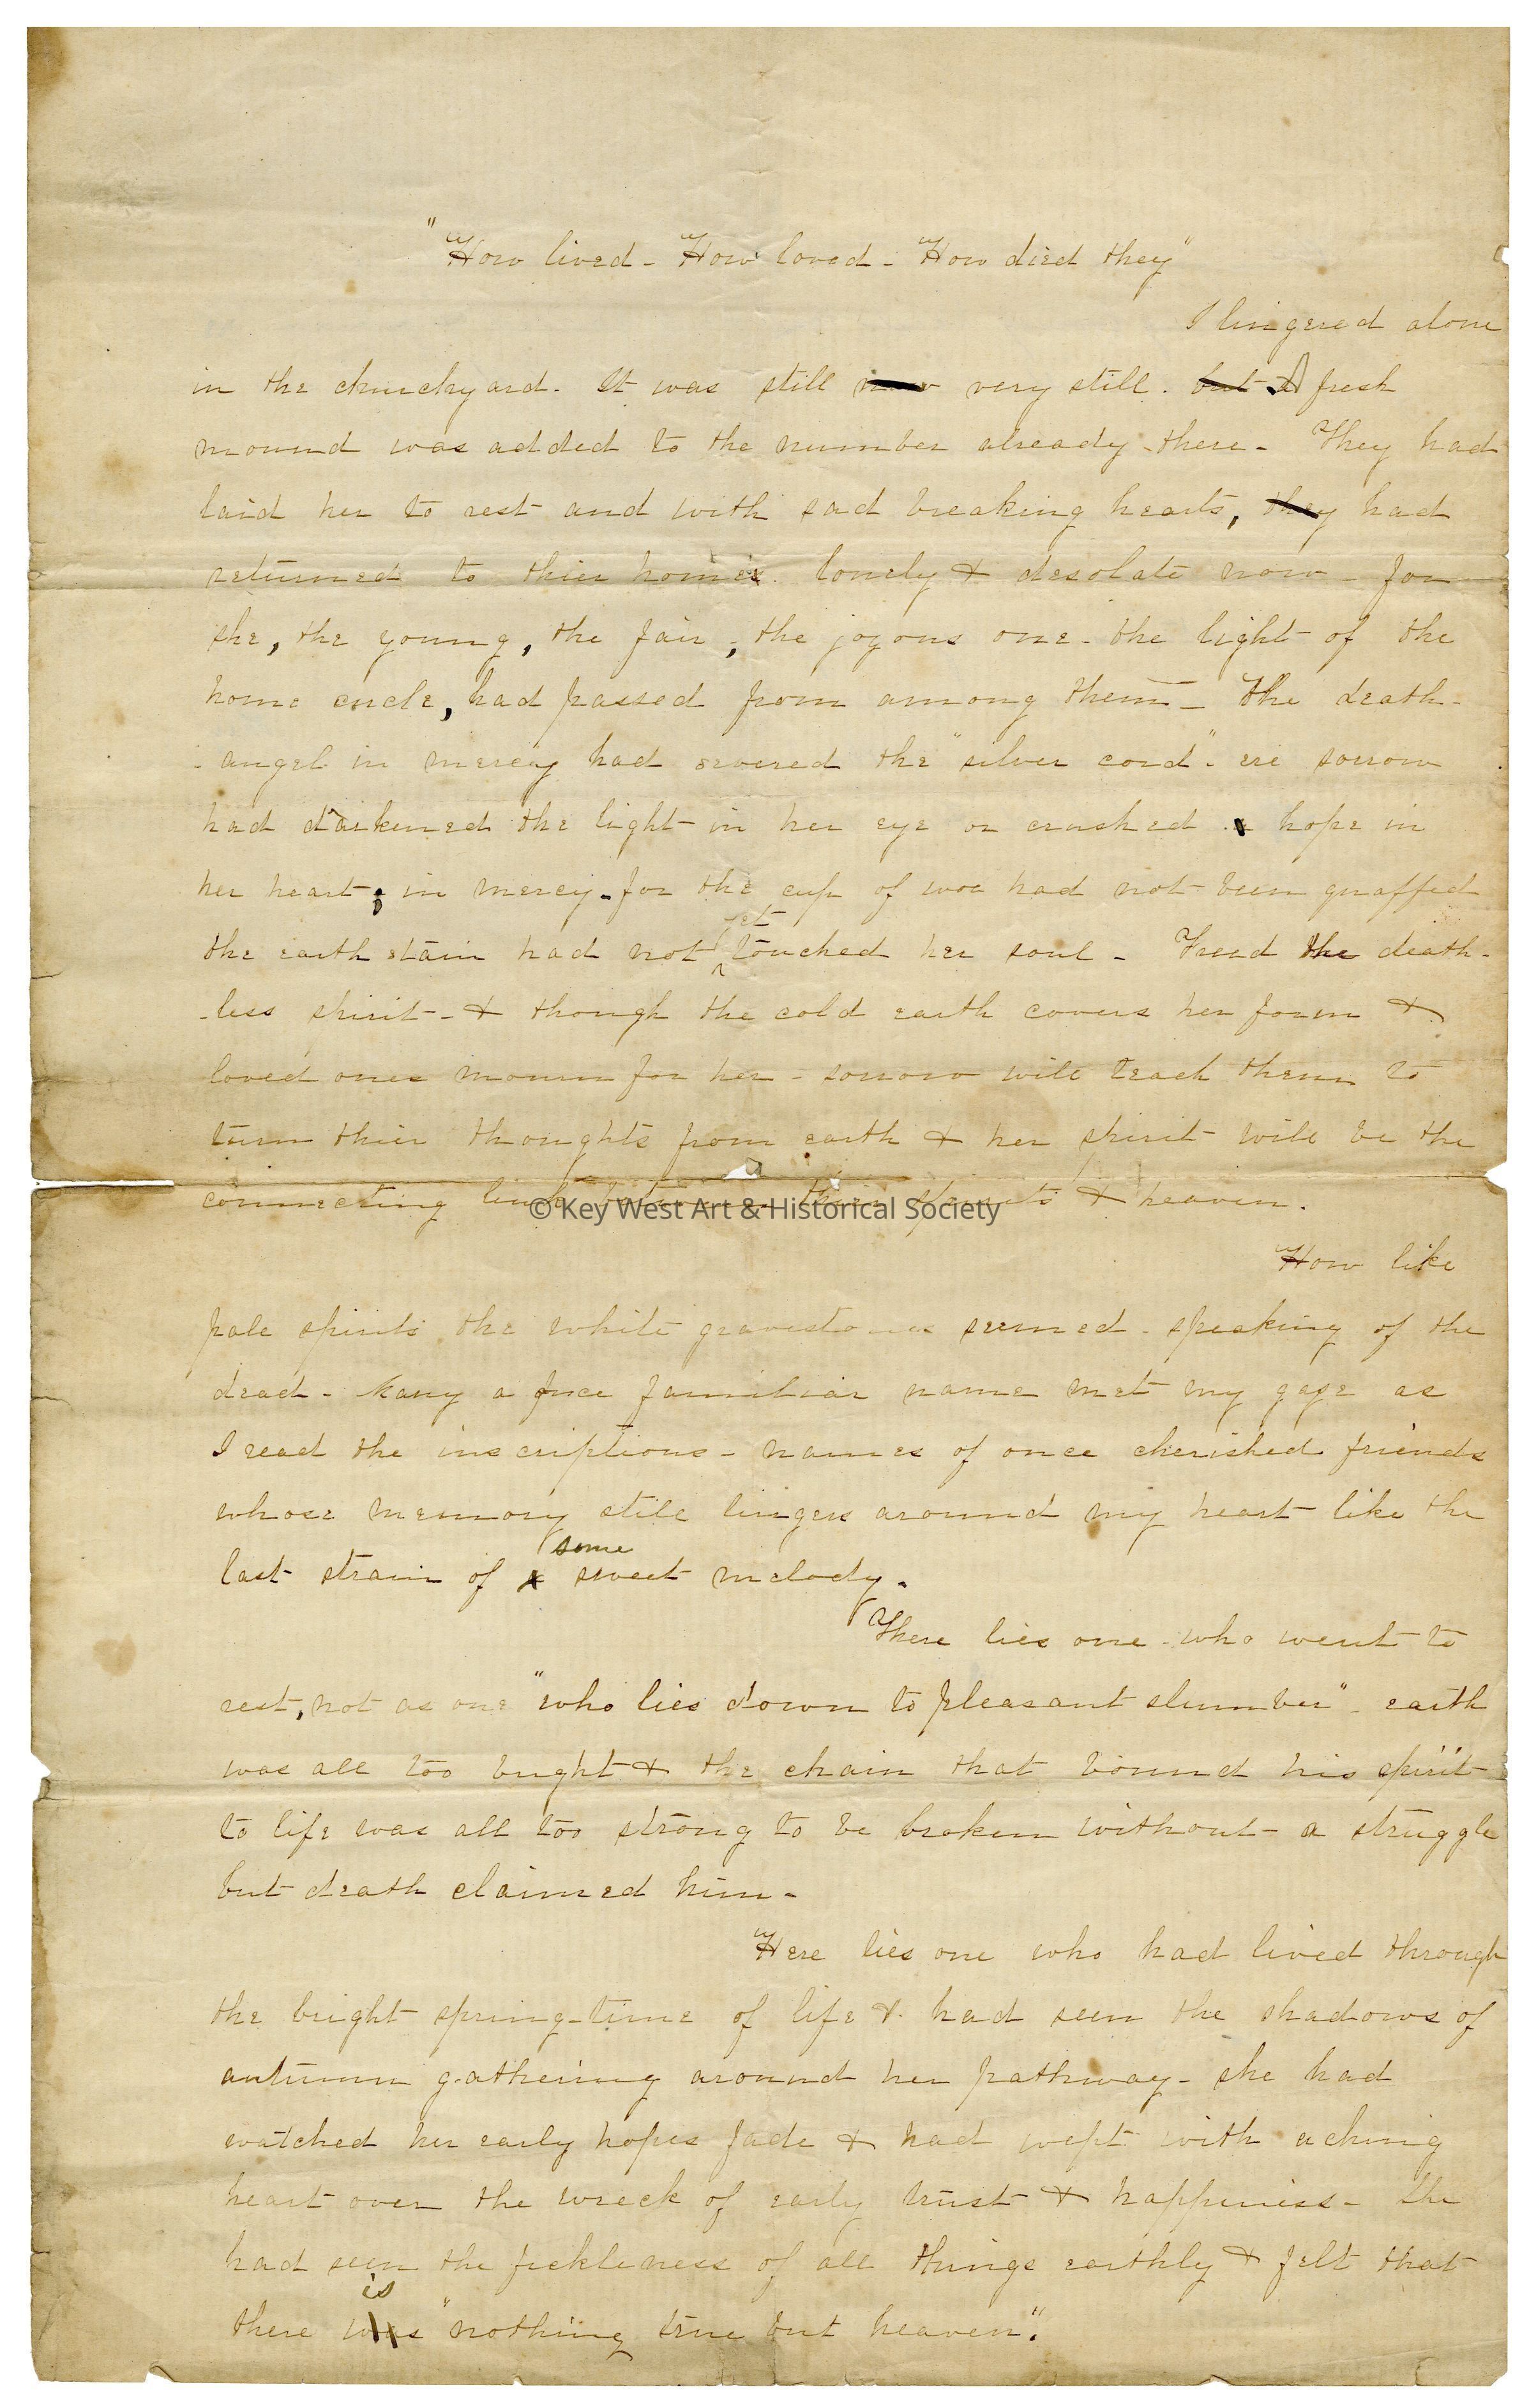 "How lived - How loved - How died they"
I lingered alone
in the churchyard. It was still now very still. but A fresh
mound was added to the number already there - They had
laid her to rest and with sad breaking hearts, they had
returned to thier homes. lonely & desolate now - for
she, the young, the fair, the joyous one - the light of the
home circle, had passed from among them - the death-
-angel in mercy had severed the "silver cord" - ere sorrow
had darkened the light in her eye or crushed a hope in
her heart; in mercy - for the cup of woe had not been quaffed
yet
the earth stain had not touched her soul - Freed the death-
-less spirit - & though the cold earth covers her form &
loved ones mourn for her - sorrow will teach them to
turn thier thoughts from earth & her spirit will be the
connecting link between thier hearts & heaven.
© Key West Art & Historical Society
How like
pale spirits the white gravestones seemed - speaking of the
dead - Many a once familiar name met my gaze as
I read the inscriptions - names of once cherished friends
whose memory still lingers around my heart like the
some
last strain of a sweet melody.
There lies one - who went to
rest, not as one "who lies down to pleasant slumber" - earth
was all too bright & the chain that bound his spirit
to life was all too strong to be broken without a struggle
but death claimed him -
Here lies one who had lived through
the bright spring-time of life & had seen the shadows of
autumn gathering around her pathway - she had
watched her early hopes fade & had wept with aching
heart over the wreck of early trust & happiness - She
had seen the fickleness of all things earthly & felt that
is
there was "nothing true but heaven".